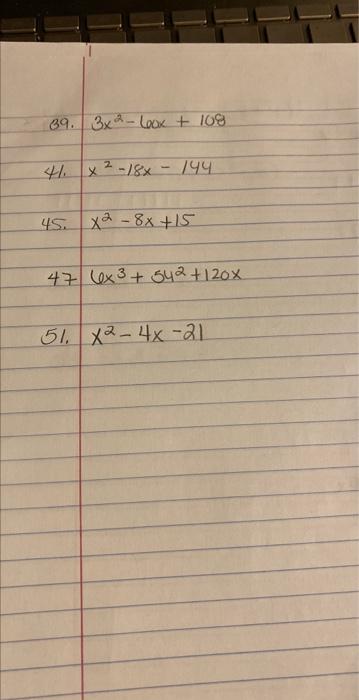 39. 3x² - 60x + 108
41. x² - 18x - 144
45. x² - 8x + 15
47 6x³ + 54² + 120x
51. x² - 4x - 21